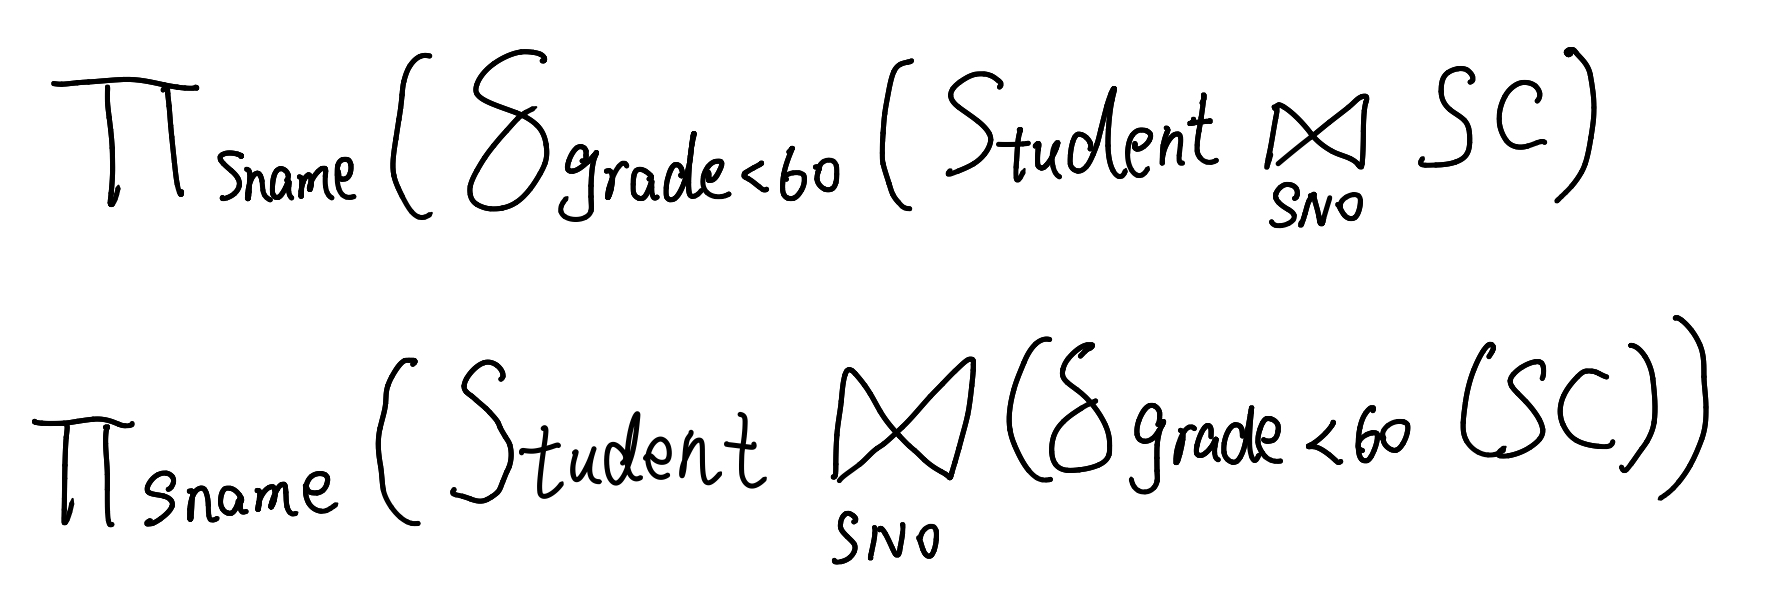 Π Sname (δ grade<60 (Student ⋈ SNO SC)
Π Sname (Student ⋈ SNO (δ grade<60 (SC))